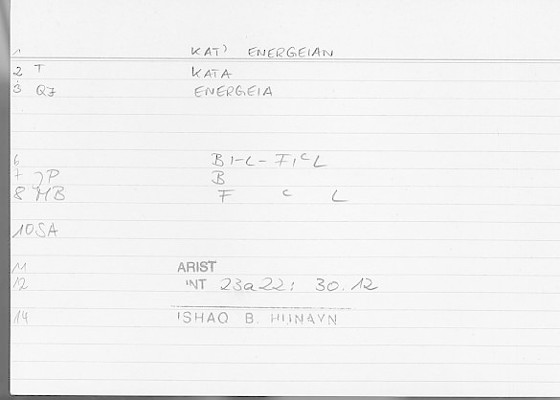 1 KAT) ENERGEIAN
2 T KATA
3 QZ ENERGEIA
6 BI-L-FIcL
7 JP B
8 MB F c L
10 SA
11 ARIST
12 INT 23a22; 30.12
14 ISHAQ B. HUNAYN